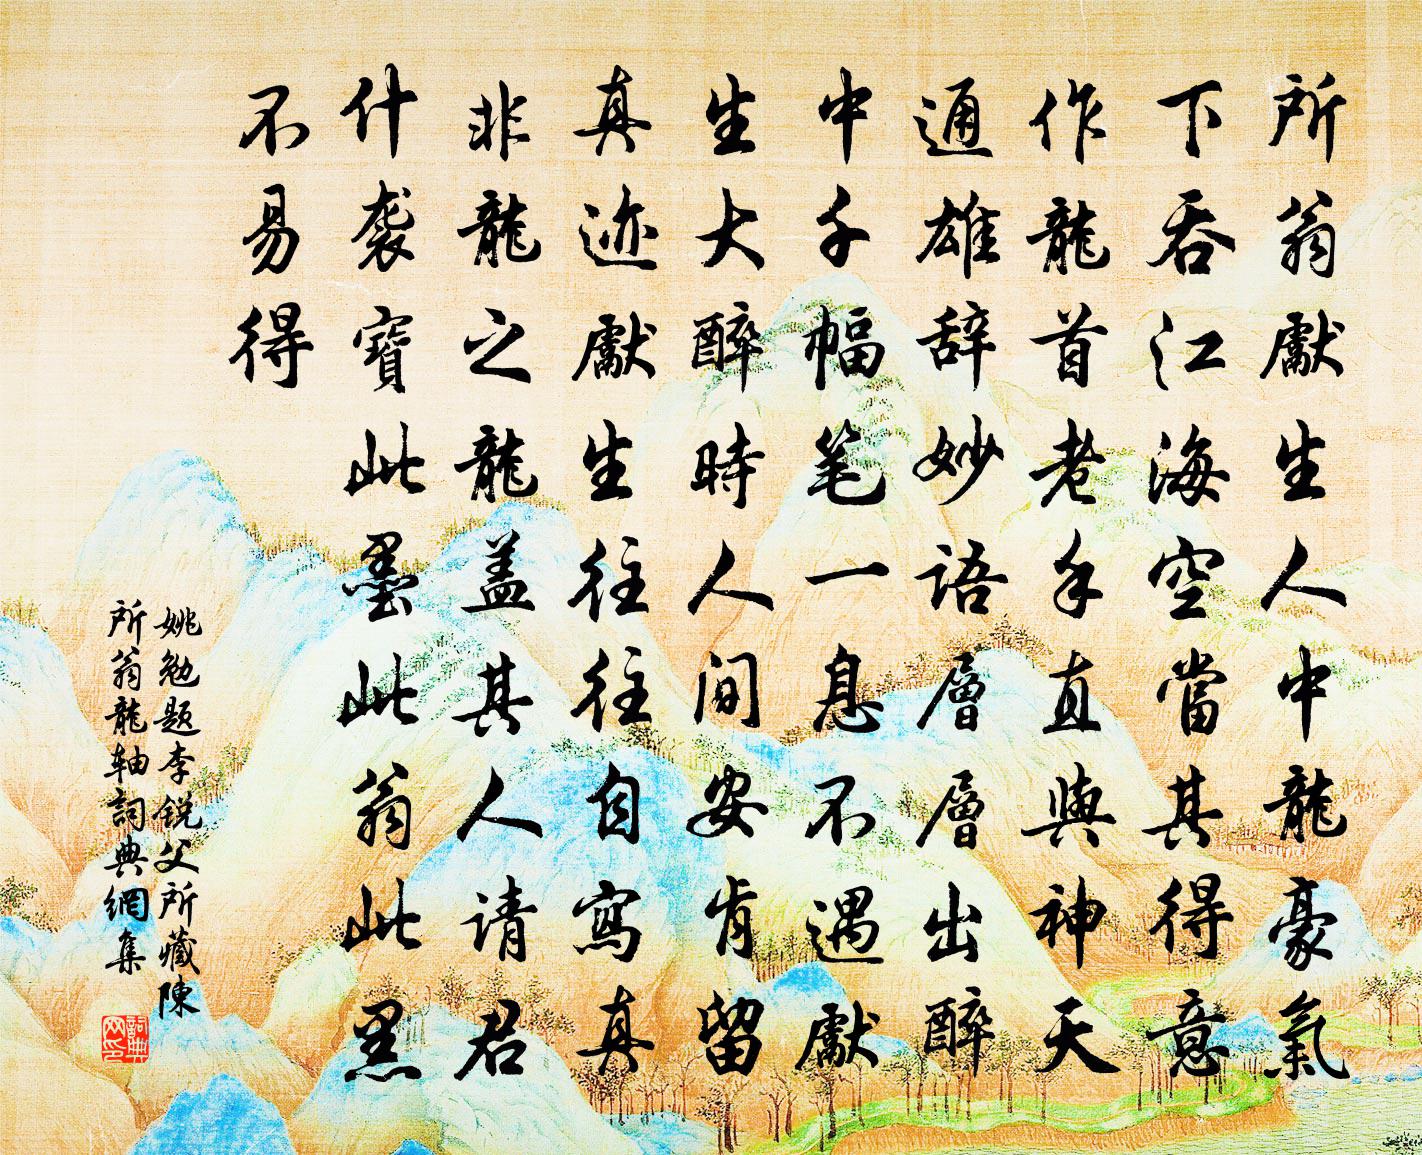 所翁獻生人中龍豪氣
下吞江海空當其得意
作龍首老手直與神天
通雄辞妙語層層出醉
中千幅笔一息不遇獻
生大醉時人间安肯留
真迹獻生往往自寫真
非龍之龍盖其人请君
什袭寶此墨此翁此黑
不易得
姚勉题李锐父所藏陳
所翁龍轴詞典網集
詞典網印